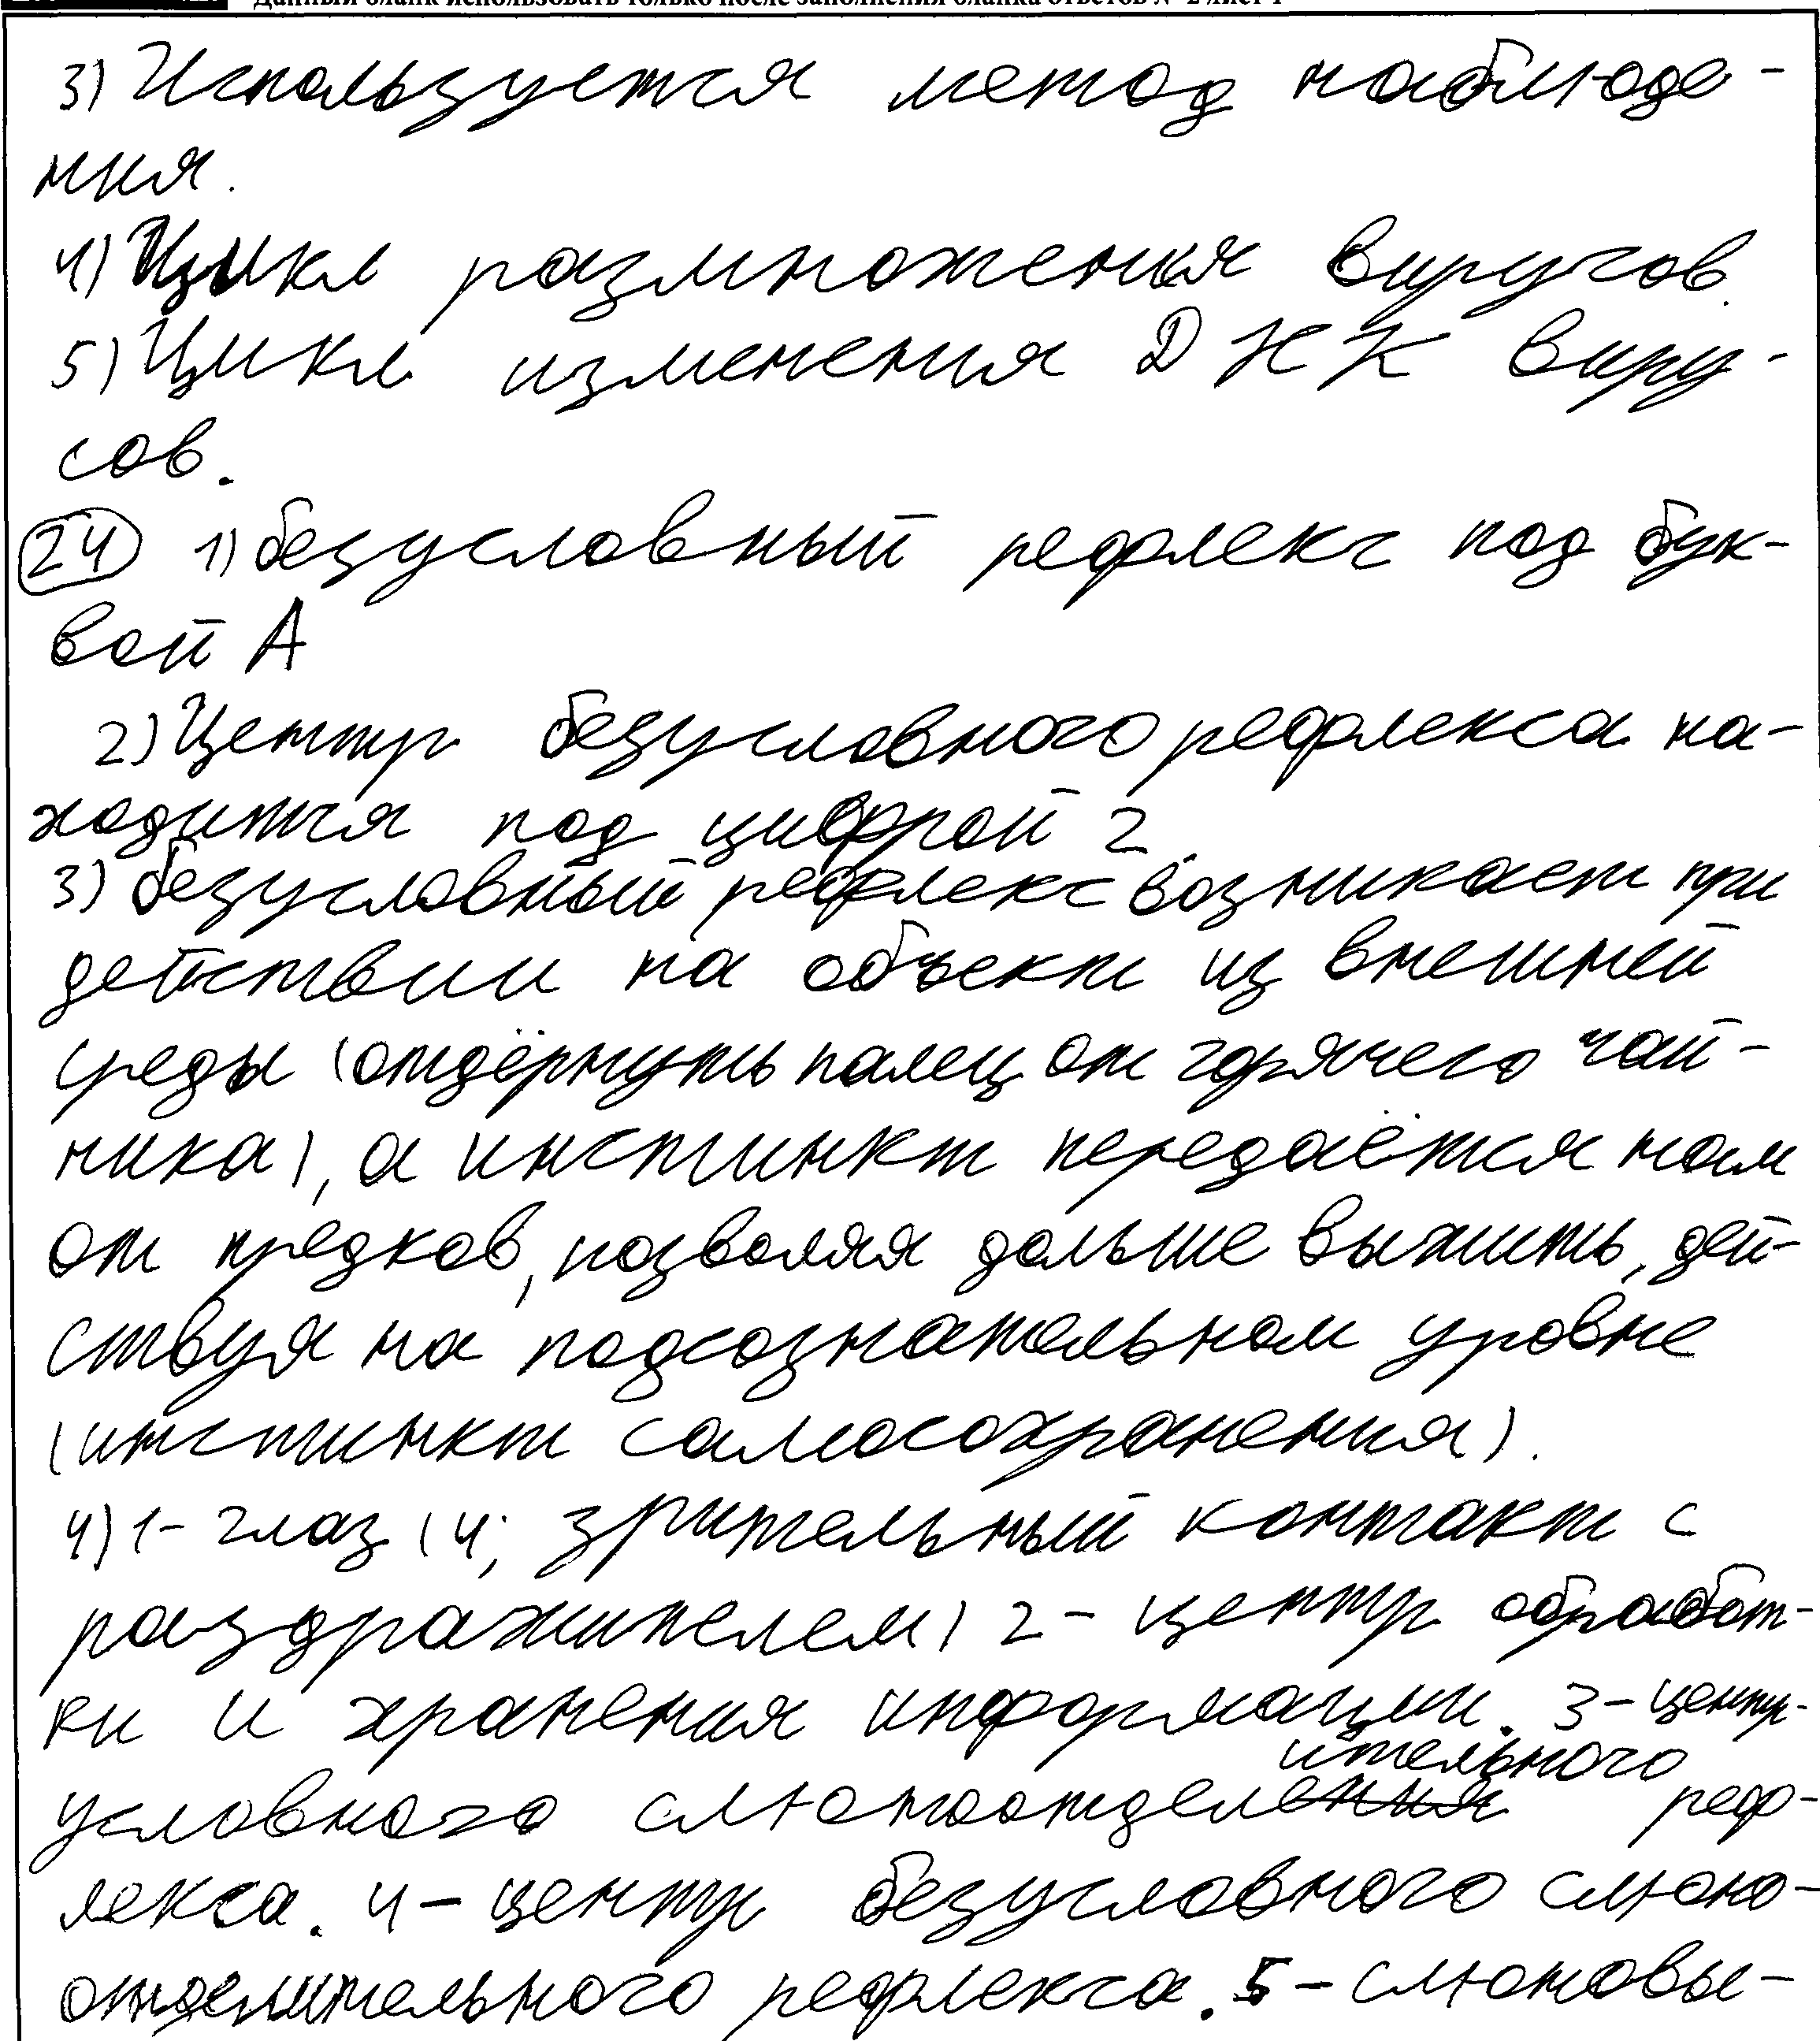 Данный бланк использовать только после заполнения бланка ответов № 2 лист 1
3) Используется метод наблюде-
ния.
4) Цикл размножения вирусов.
5) Цикл изменения ДНК виру-
сов.
24 1) безусловный рефлекс под бук-
вой А
2) Центр безусловного рефлекса на-
ходится под цифрой 2.
3) безусловный рефлекс возникает при
действии на объект из внешней
среды (отдёрнуть палец от горячего чай-
ника), а инстинкт передаётся нам
от предков, позволяя дольше выжить, дей-
ствуя на подсознательном уровне
(инстинкт самосохранения).
4) 1- глаз (4; зрительный контакт с
раздражителем) 2 - центр обработ-
ки и хранения информации. 3 - центр
условного слюноотделительного реф-
лекса. 4 - центр безусловного слюно-
отделительного рефлекса. 5 - слюновы-